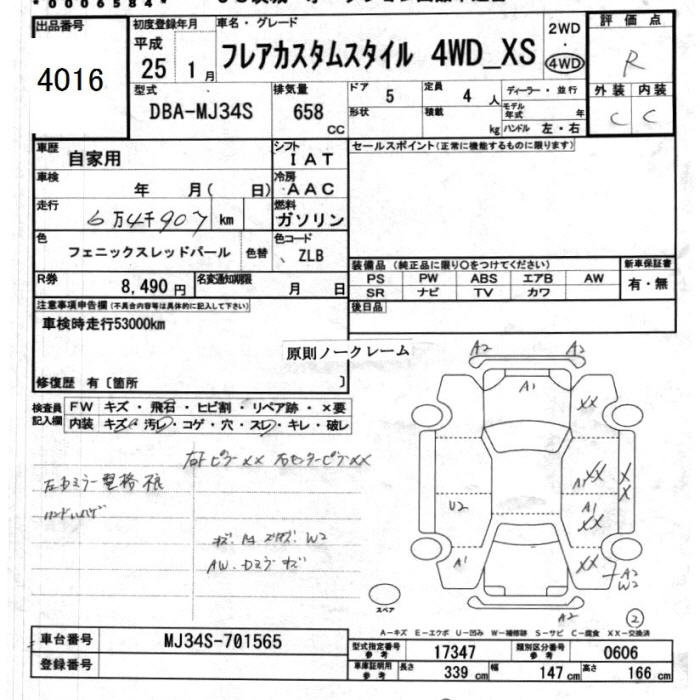 *0006584*
出品番号
4016
初度登録年月
平成
25 1月
車名・グレード
フレアカスタムスタイル 4WD_XS
2WD
・
4WD
評価点
R
外装 内装
C C
型式
DBA-MJ34S
排気量
658
CC
ドア
5
定員
4 人
形状
積載
kg
ディーラー・並行
モデル年式 年
ハンドル 左・右
車歴
自家用
シフト
IAT
車検
年 月( 日)
冷房
AAC
走行
6万4千907 km
燃料
ガソリン
色
フェニックスレッドパール
色替
色コード
ZLB
R券
8,490 円
名変通知期限
月 日
セールスポイント(正常に機能するものに限ります)
装備品 (純正品に限り〇をつけてください)
PS PW ABS エアB AW
SR ナビ TV カワ
新車保証書
有・無
後日品
注意事項申告欄(不具合内容等は具体的に記入して下さい)
車検時走行53000km
原則ノークレーム
修復歴 有〔箇所 〕
検査員記入欄
FW キズ・飛石・ヒビ割・リペア跡・×要
内装 キズ・汚レ・コゲ・穴・スレ・キレ・破レ
右FピラーXX 右センターピラーXX
A2 A2
A1
XX
XX
A1
X
X
U2
A1
XX
A1
XX
A2
W2
A2
スペア
2
A-キズ E-エクボ U-凹み W-補修跡 S-サビ C-腐食 XX-交換済
車台番号
MJ34S-701565
登録番号
型式指定番号
参考
17347
類別区分番号
参考
0606
車庫証明用
参考
長さ 339 cm
幅 147 cm
高さ 166 cm